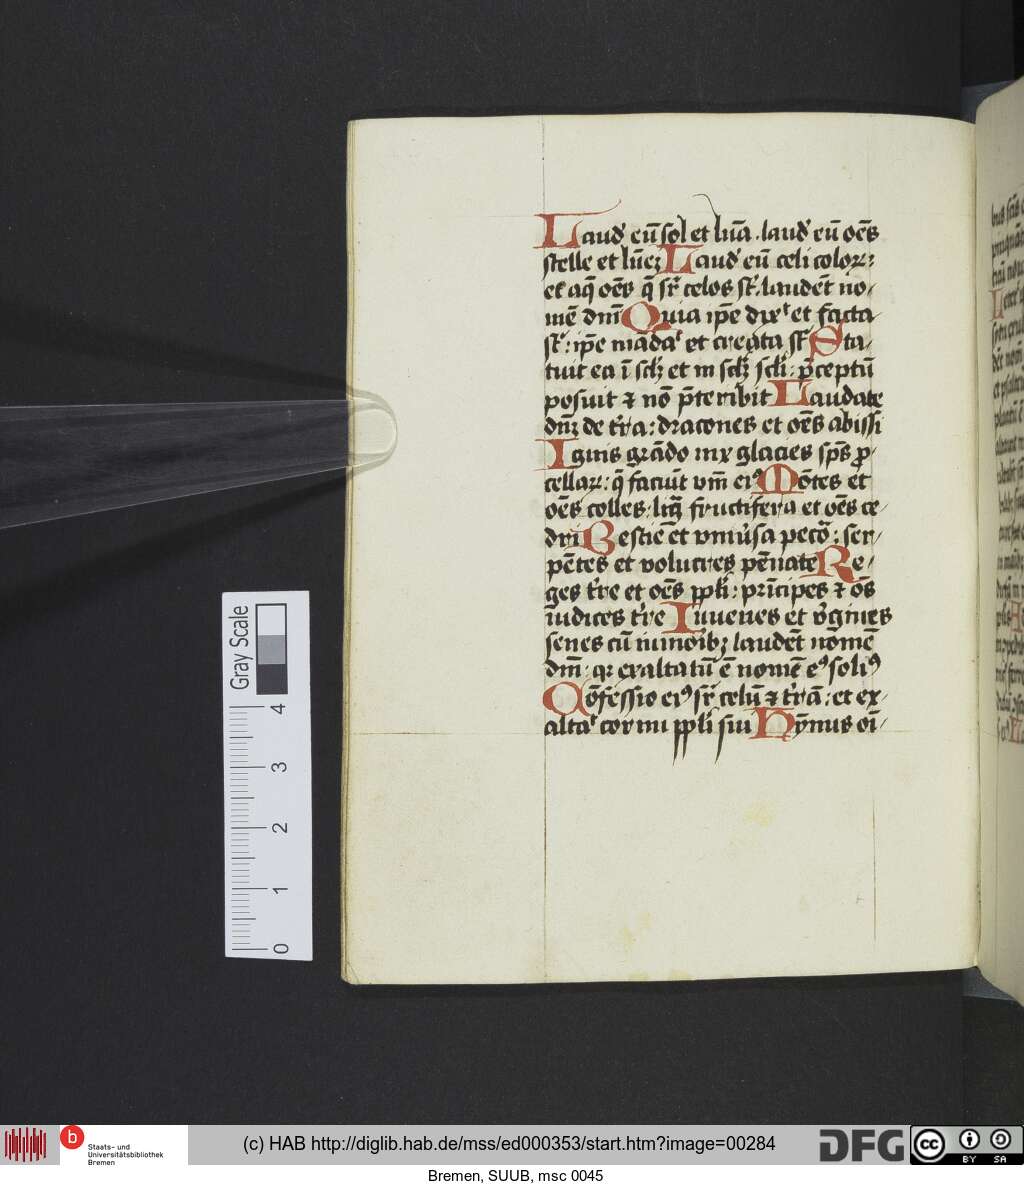 Laud' eū sol et lūa . laud' eū oēs
stelle et lūeꝫ Laud' eū celi celoꝝ :
et aq̄ oēs q̄ sr̄ celos st̄ . laudēt no/
mē dnī Quia ip̄e dixᵗ et facta
st̄ : ip̄e mādaᵗ et creata st̄ Sta/
tuit ea ī sclꝫ et in sclꝫ scli : p̄ceptū
posuit ⁊ nō p̄teribit Laudate
dnꝫ de tr̄a : dracones et oēs abissi
Ignis grādo nix glacies sp̄s ꝓ/
cellaꝝ : q̄ faciūt vm̄ eiꝰ Mōtes et
oēs colles . liḡ fructifera et oēs ce/
dri Bestie et vniūsa peco : ser/
pētes et volucres pēnate Re/
ges tr̄re et oēs ppli : prīcipes ⁊ oēs
iudices tr̄re Iuuenes et v̄gines
senes cū iuniorībꝫ laudēt nōmē
dnī : qꝛ exaltatū ē nomē eꝰ soliꝰ
Cōfessio eiꝰ sr̄ celū ⁊ tr̄ā : et ex/
altaᵗ cornu ppli sui Hȳmnus oī/
Gray Scale
4
3
2
1
0
b
Staats- und
Universitätsbibliothek
Bremen
(c) HAB http://diglib.hab.de/mss/ed000353/start.htm?image=00284
DFG
cc
BY SA
Bremen, SUUB, msc 0045